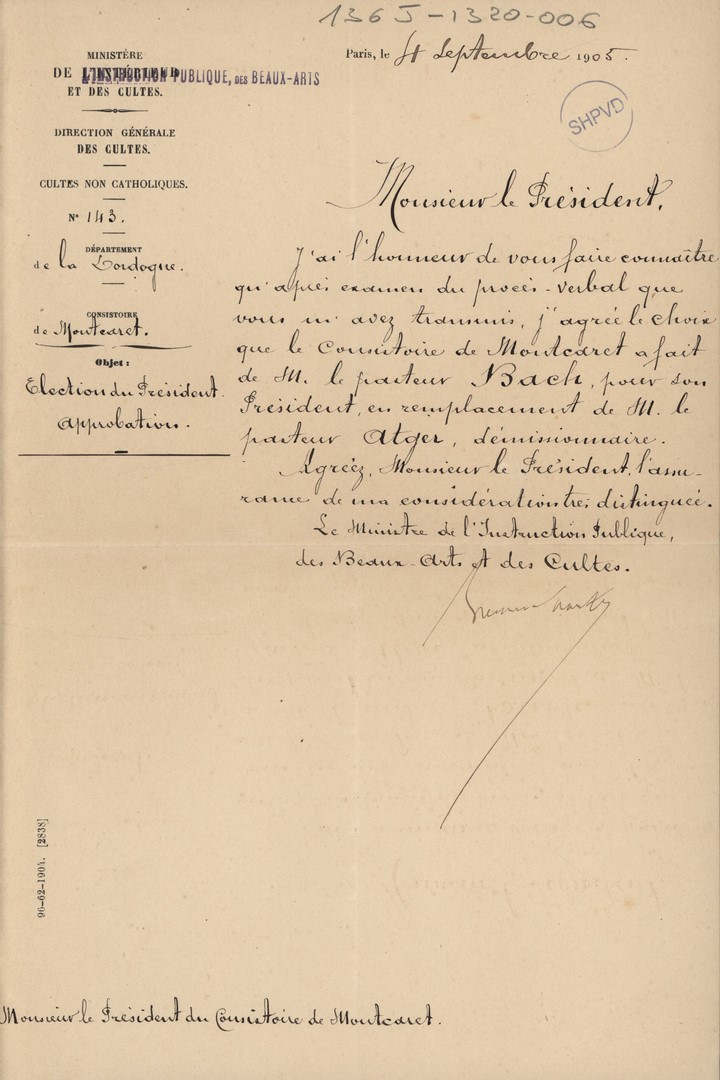 136 J-1320-006
MINISTÈRE
DE L'INTÉRIEUR
L'INSTRUCTION PUBLIQUE, DES BEAUX-ARTS
ET DES CULTES.
DIRECTION GÉNÉRALE
DES CULTES.
CULTES NON CATHOLIQUES.
N° 143.
DÉPARTEMENT
de la Dordogne.
CONSISTOIRE
de Montcaret.
Objet :
Élection du Président.
Approbation.
Paris, le Septembre 1905.
SHPVD
Monsieur le Président,
J'ai l'honneur de vous faire connaître
qu'après examen du procès-verbal que
vous m'avez transmis, j'agrée le choix
que le Consistoire de Montcaret a fait
de M. le pasteur Bach, pour son
Président, en remplacement de M. le
pasteur Atger, démissionnaire.
Agréez, Monsieur le Président, l'assu-
rance de ma considération très distinguée.
Le Ministre de l'Instruction Publique,
des Beaux-Arts et des Cultes.
96-62-1904. [2838]
Monsieur le Président du Consistoire de Montcaret.